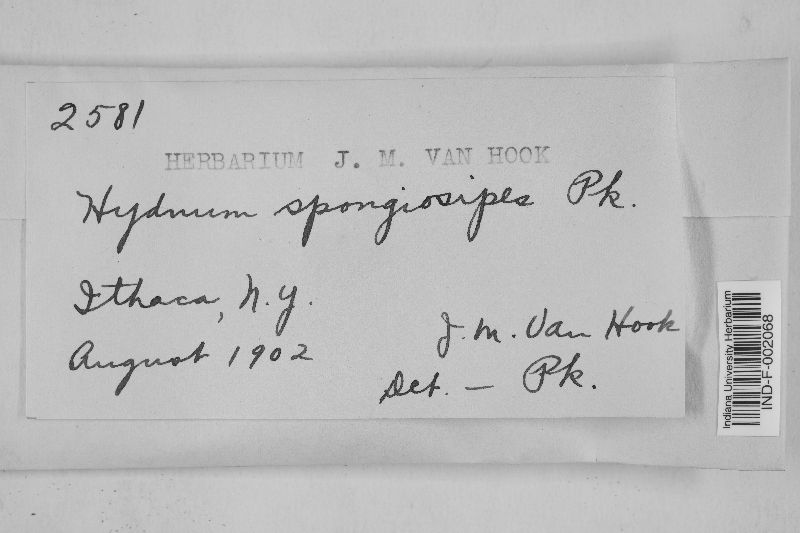 2581
HERBARIUM J. M. VAN HOOK
Hydnum spongiosipes Pk.
Ithaca, N.Y.
August 1902
J. M. Van Hook
Det. — Pk.
Indiana University Herbarium
IND-F-002068